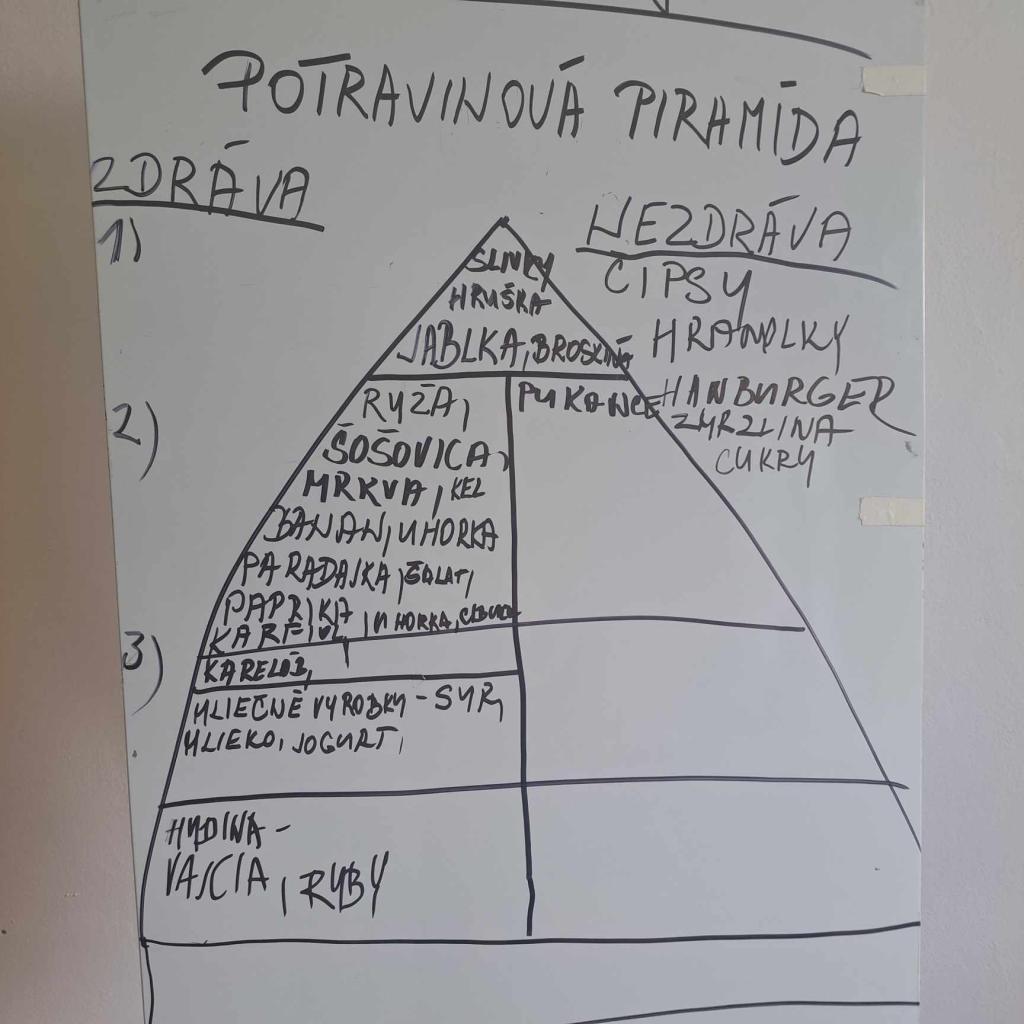 POTRAVINOVÁ PIRAMÍDA
ZDRÁVA
NEZDRÁVA
1)
SLIVKY
HRUŠKA
JABLKA, BROSKYŇA
CIPSY
HRANOLKY
HANBURGER
ZMRZLINA
CUKRY
2)
RYŽA,
PUKANCE
ŠOŠOVICA,
MRKVA, KEL
BANAN, UHORKA
PARADAJKA, ŠALAT,
PAPRIKA
KARFIOL, UHORKA,
3)
KARELÓB,
MLIEČNÉ VYROBKY - SYR,
MLIEKO, JOGURT,
HYDINA -
VAJCIA, RYBY